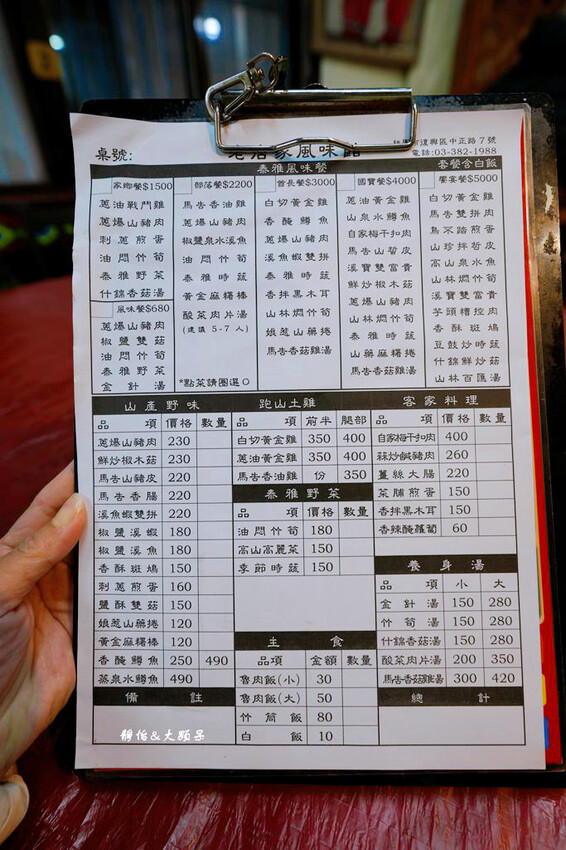 桌號:
區中正路7號
電話:03-382-1988
泰雅風味餐
套餐含白飯
家鄉餐$1500
蔥油戰鬥雞
蔥爆山豬肉
刺蔥煎蛋
油悶竹筍
泰雅野菜
什錦香菇湯
風味餐$680
蔥爆山豬肉
椒鹽雙菇
油悶竹筍
泰雅野菜
金針湯
部落餐$2200
馬告香油雞
蔥爆山豬肉
椒鹽泉水溪魚
油悶竹筍
泰雅時蔬
黃金麻糬棒
酸菜肉片湯
(建議5-7人)
*點菜請圈選O
酋長餐$3000
白切黃金雞
香醃鱒魚
蔥爆山豬肉
椒鹽溪蝦
泰雅時蔬
香拌黑木耳
山林燜竹筍
娘惹山藥捲
馬告香菇雞湯
國寶餐$4000
蔥油黃金雞
山泉水鱒魚
自家梅干扣肉
馬告山豬皮
溪寶雙富貴
鮮炒椒木菇
蔥爆山豬肉
山林燜竹筍
泰雅時蔬
山藥麻糬捲
馬告香菇雞湯
饗宴餐$5000
白切黃金雞
馬告雙拼肉
鳥不踏煎蛋
山珍拌岩皮
高山泉水魚
山林燜竹筍
溪寶雙富貴
芋頭糟控肉
香酥斑鳩
豆鼓炒時蔬
什錦鮮炒菇
山林百匯湯
山產野味
品項 價格 數量
蔥爆山豬肉 230
鮮炒椒木菇 230
馬告山豬皮 220
馬告香腸 220
溪魚蝦雙拼 220
椒鹽溪蝦 180
椒鹽溪魚 180
香酥斑鳩 150
刺蔥煎蛋 160
鹽酥雙菇 150
娘惹山藥捲 120
黃金麻糬棒 120
香醃鱒魚 250 490
蒸泉水鱒魚 490
備註
跑山土雞 前半 腿部
白切黃金雞 350 400
蔥油黃金雞 350 400
馬告香油雞 份 350
泰雅野菜
品項 價格 數量
油悶竹筍 180
高山高麗菜 150
季節時蔬 150
主食
品項 金額 數量
魯肉飯(小) 30
魯肉飯(大) 50
竹筒飯 80
白飯 10
客家料理
品項 價格 數量
自家梅干扣肉 400
蒜炒鹹豬肉 260
薑絲大腸 220
菜脯煎蛋 150
香拌黑木耳 150
香辣醃蘿蔔 60
養身湯
品項 小 大
金針湯 150 280
竹筍湯 150 280
什錦香菇湯 150 280
酸菜肉片湯 200 350
馬告香菇雞湯 300 420
總計
靜怡&大顆呆